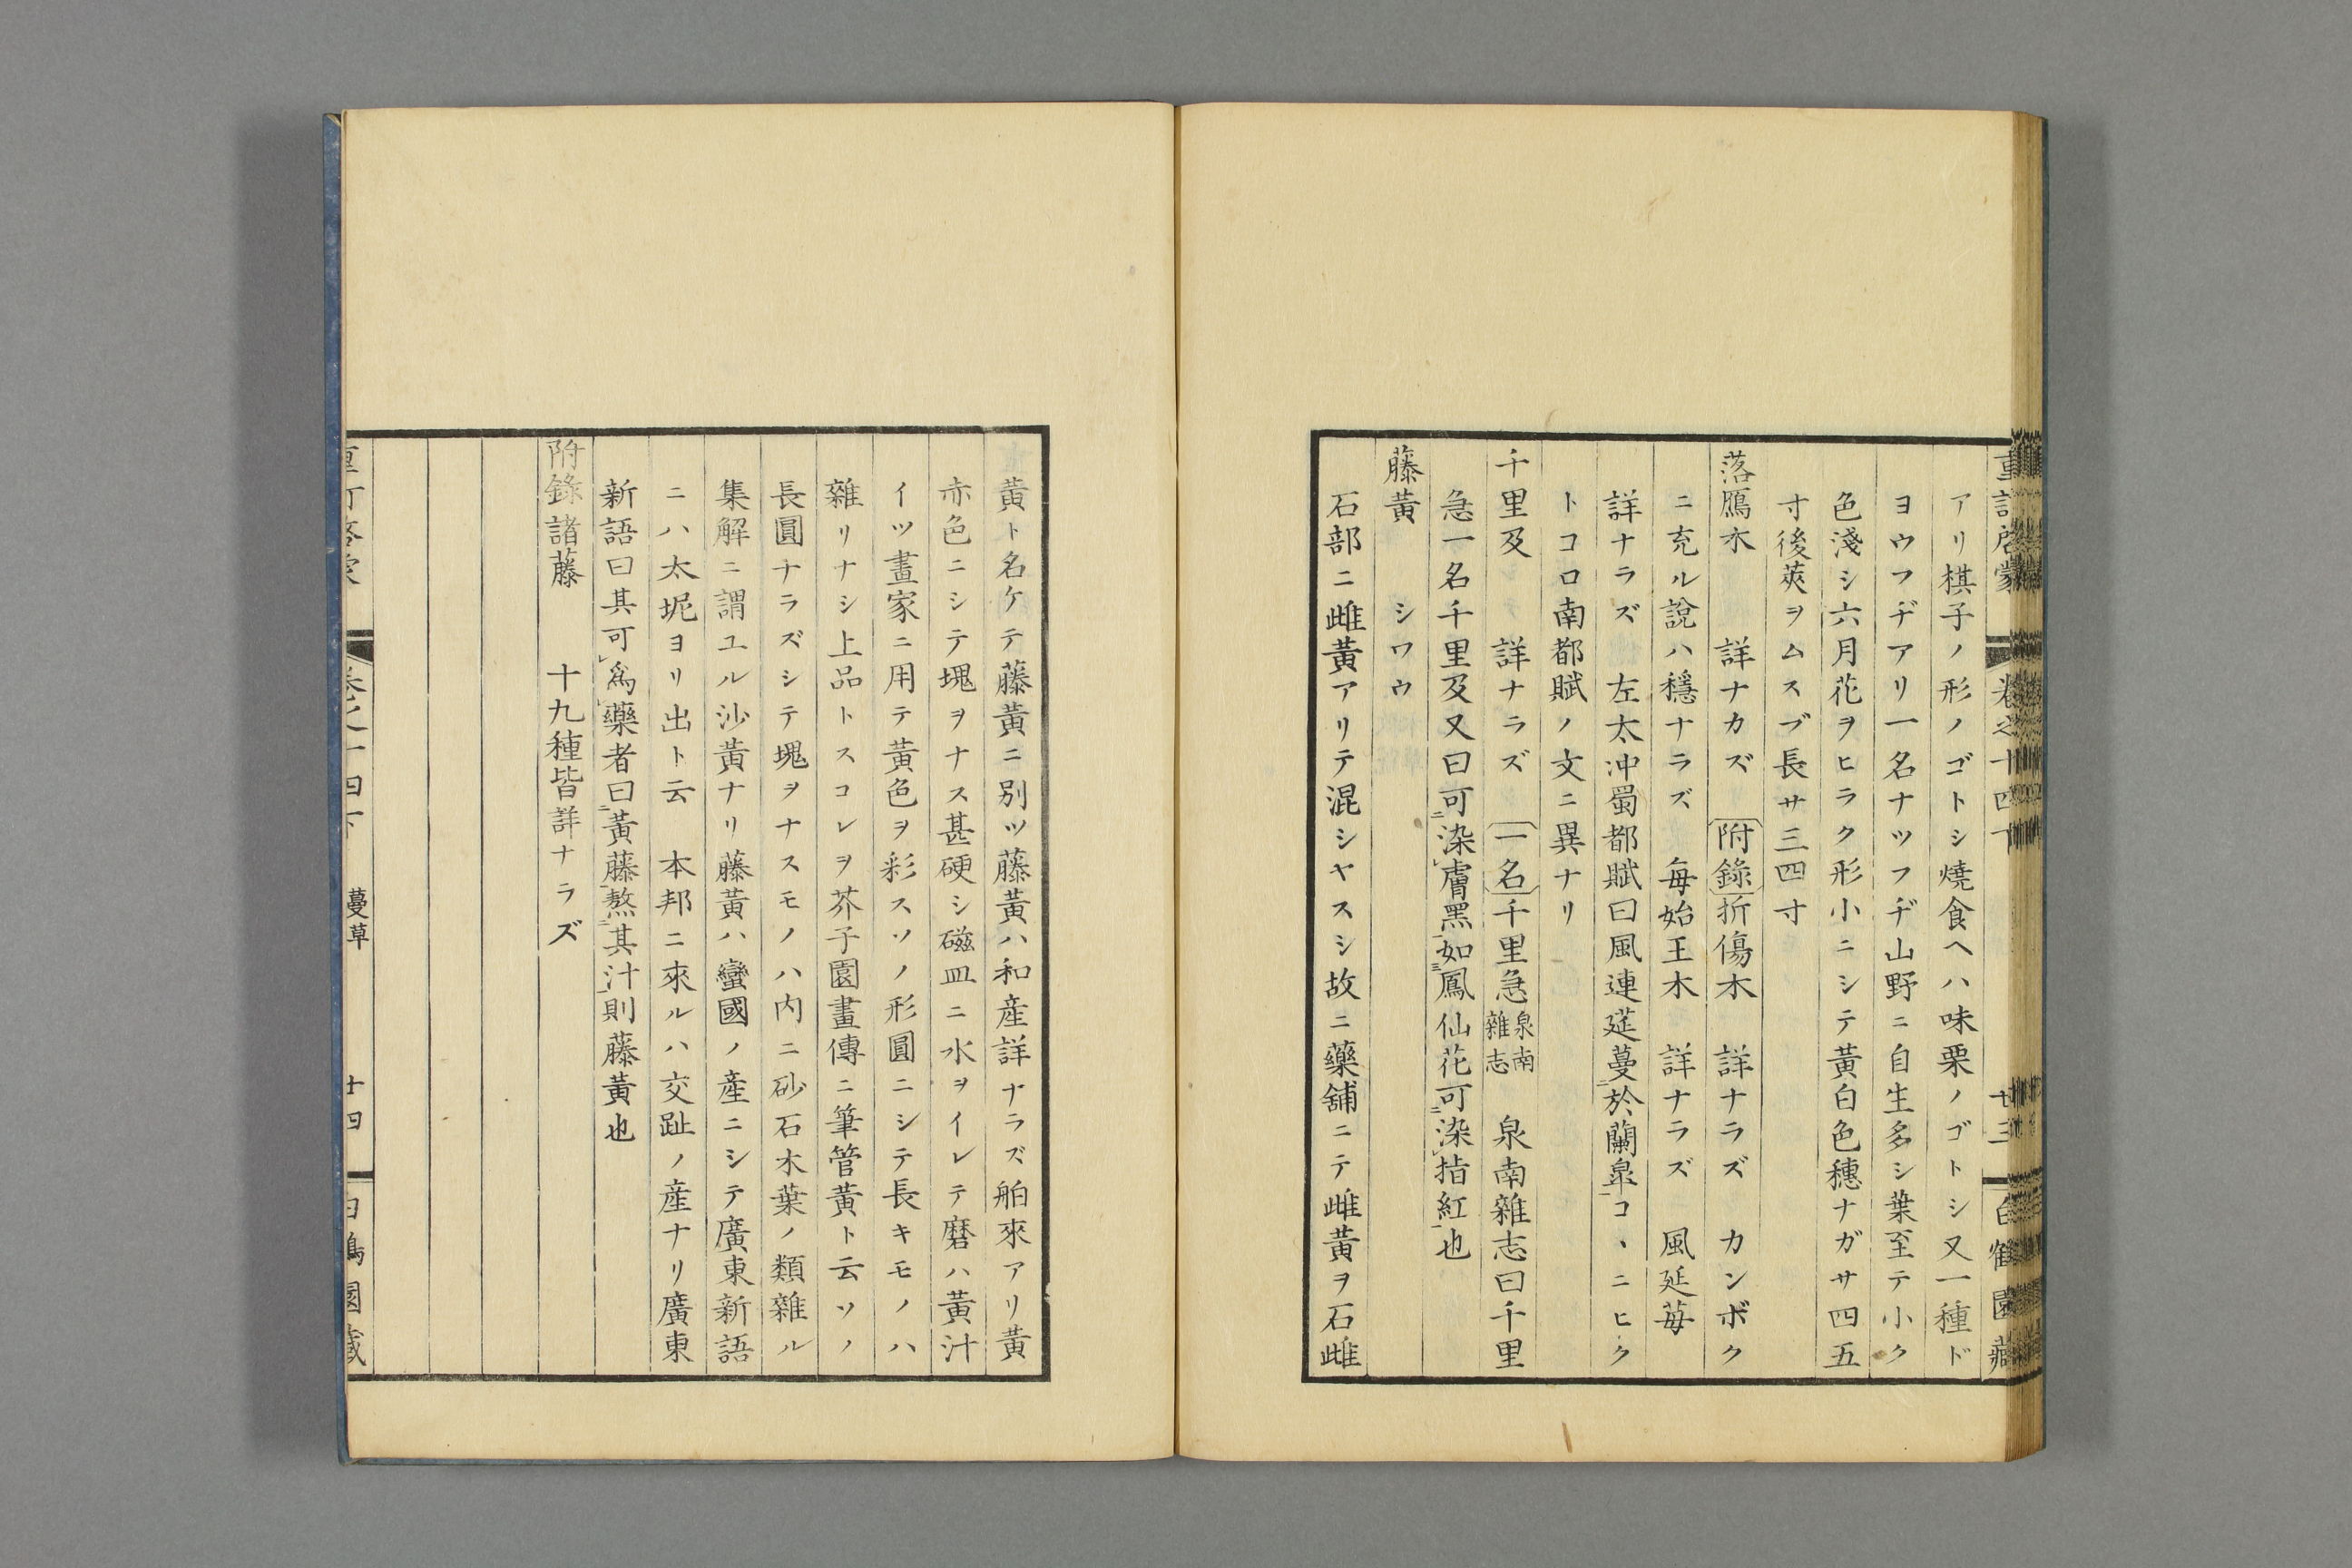 重訂啓蒙 卷之十四下 廿三 白鶴園藏
アリ棋子ノ形ノゴトシ燒食ヘハ味栗ノゴトシ又一種ド
ヨウフヂアリ一名ナツフヂ山野ニ自生多シ葉至テ小ク
色淺シ六月花ヲヒラク形小ニシテ黃白色穗ナガサ四五
寸後莢ヲムスブ長サ三四寸
落鴈木 詳ナカズ 附錄折傷木 詳ナラズ カンボク
ニ充ル說ハ穩ナラズ 每始王木 詳ナラズ 風延苺
詳ナラズ 左太冲蜀都賦曰風連莚蔓於蘭皐コヽニヒク
トコロ南都賦ノ文ニ異ナリ
千里及 詳ナラズ 一名千里急泉南雜志 泉南雜志曰千里
急一名千里及又曰可染膚黑如鳳仙花可染指紅也
藤黃 シワウ
石部ニ雌黃アリテ混シヤスシ故ニ藥舖ニテ雌黃ヲ石雌
黃ト名ケテ藤黃ニ別ツ藤黃ハ和產詳ナラズ舶來アリ黃
赤色ニシテ塊ヲナス甚硬シ磁皿ニ水ヲイレテ磨ハ黃汁
イツ畫家ニ用テ黃色ヲ彩スソノ形圓ニシテ長キモノハ
雜リナシ上品トスコレヲ芥子園畫傳ニ筆管黃ト云ソノ
長圓ナラズシテ塊ヲナスモノハ內ニ砂石木葉ノ類雜ル
集解ニ謂ユル沙黃ナリ藤黃ハ蠻國ノ產ニシテ廣東新語
ニハ太坭ヨリ出ト云 本邦ニ來ルハ交趾ノ產ナリ廣東
新語曰其可爲藥者曰黃藤熬其汁則藤黃也
附錄諸藤 十九種皆詳ナラズ
卷之十四下 蔓草 廿四